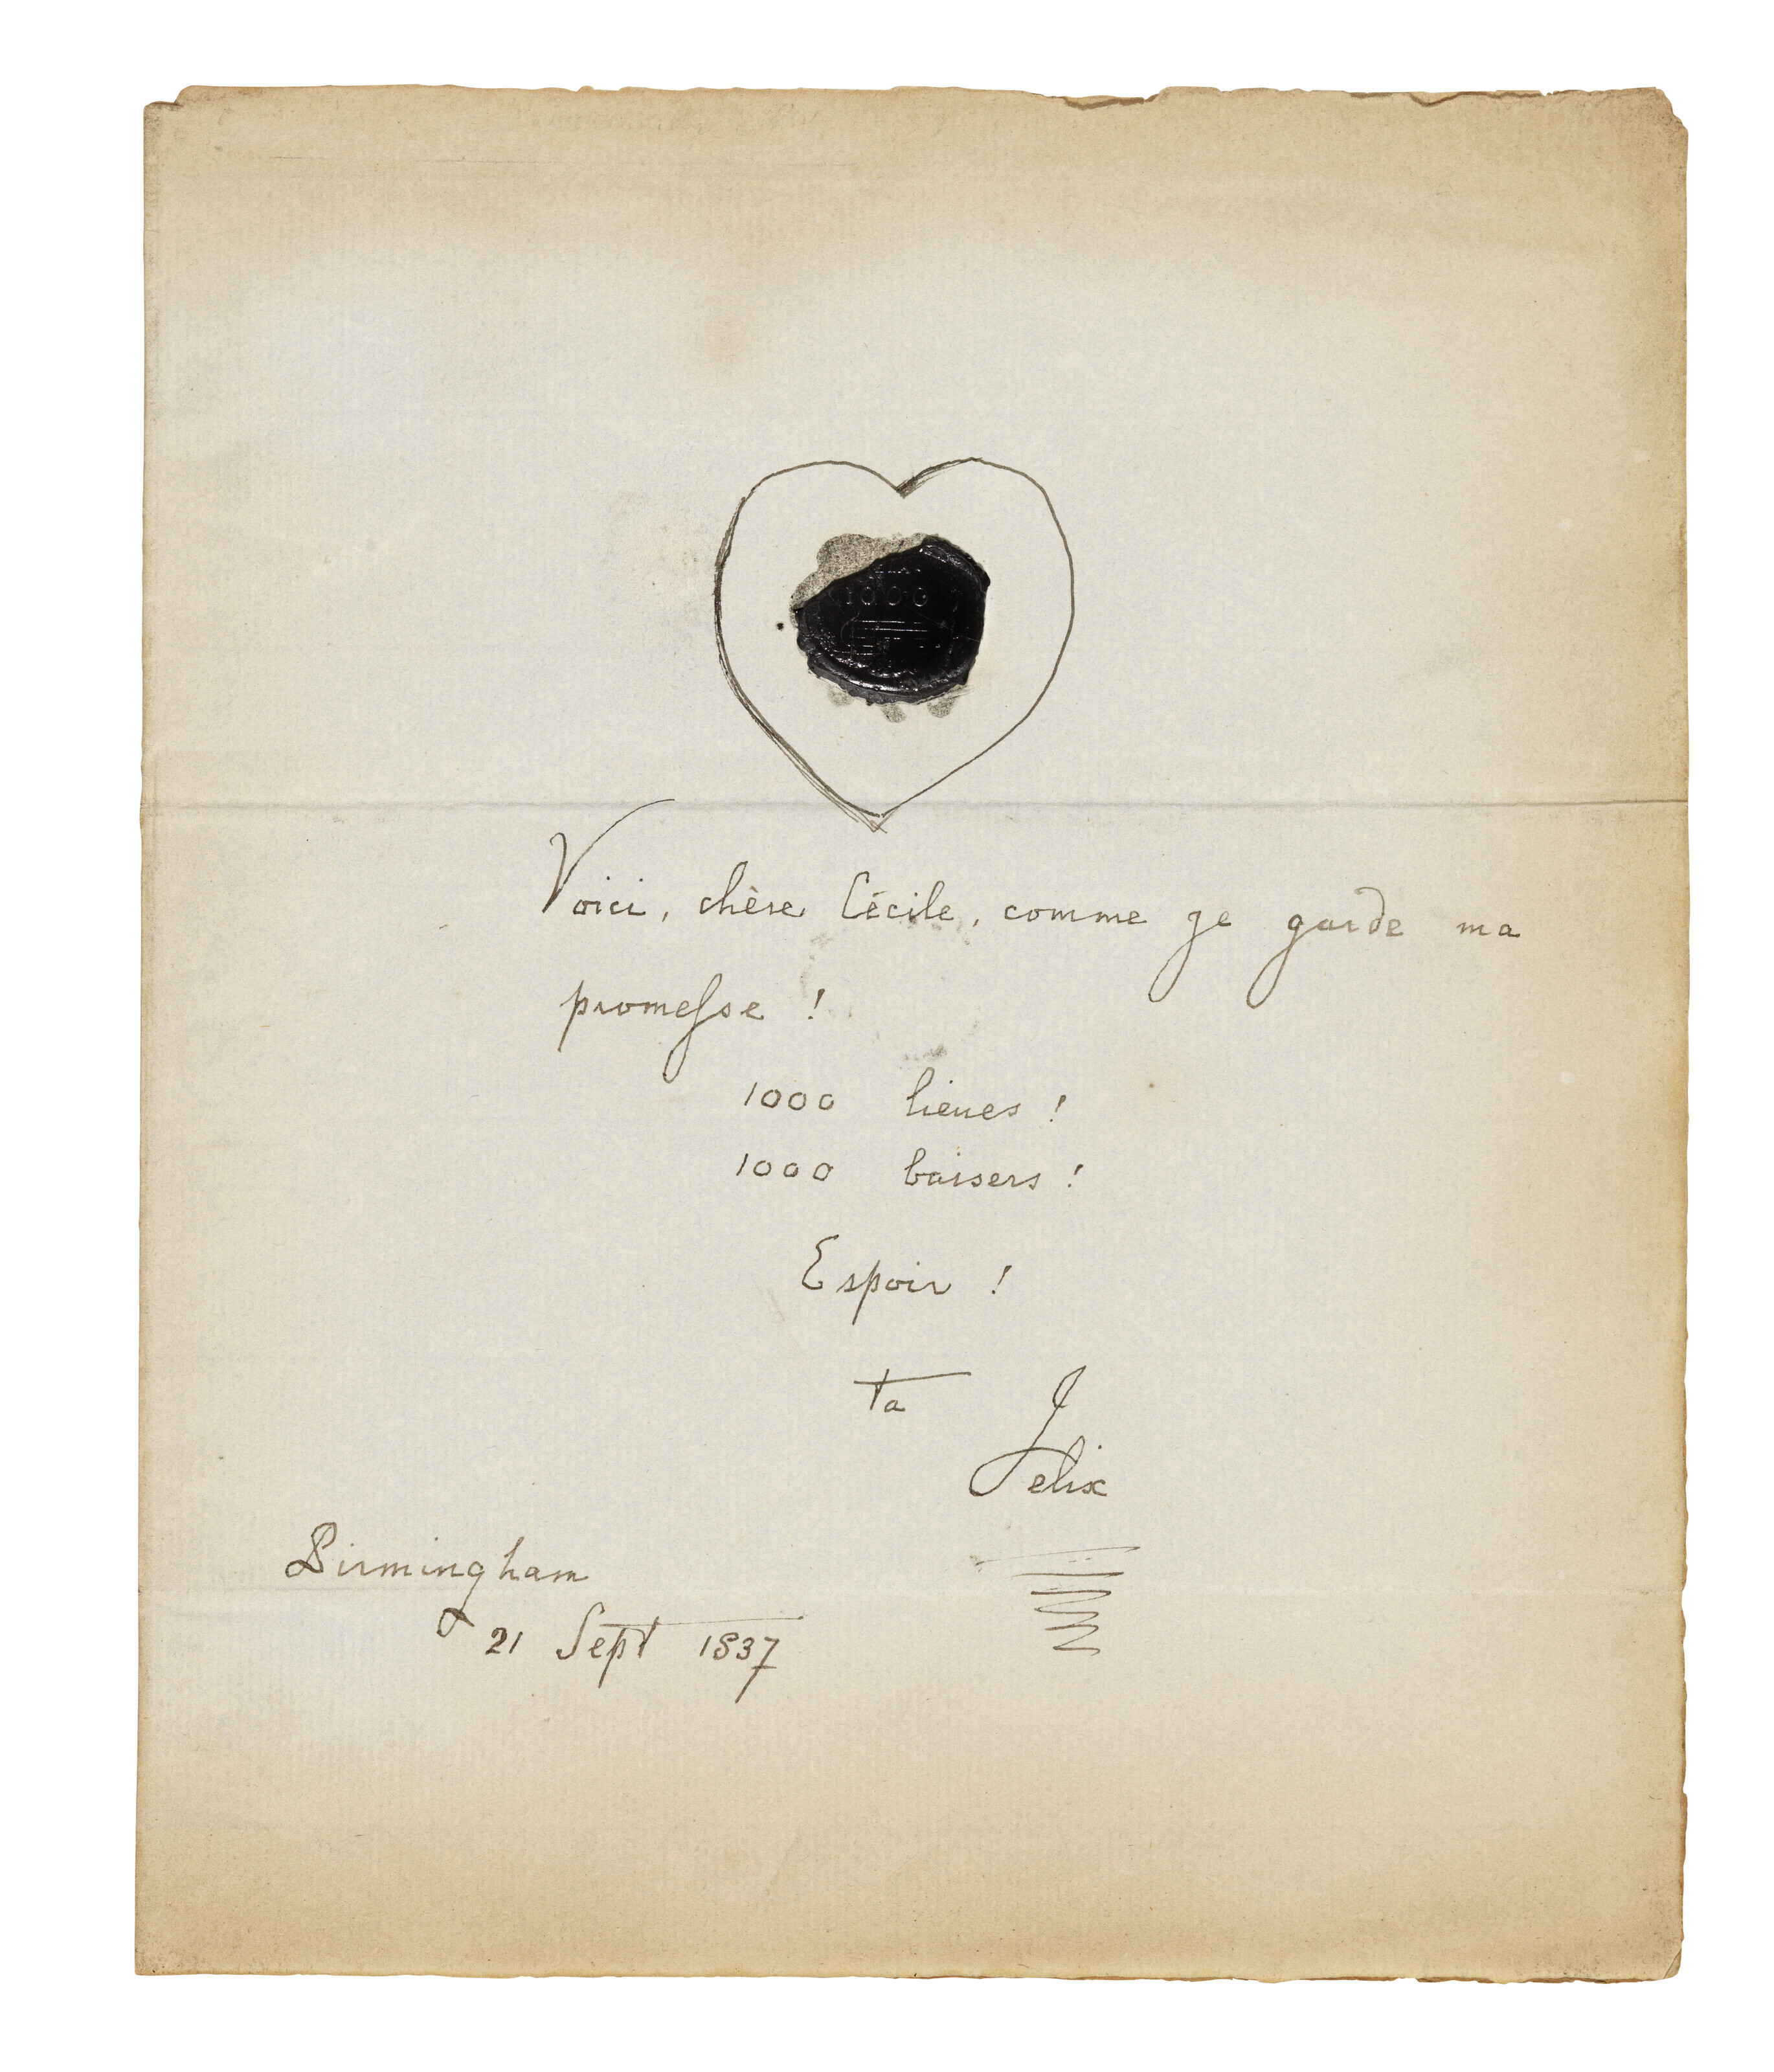 1000
Voici, chère Cécile, comme je garde ma
promesse !
1000 lieues !
1000 baisers !
Espoir !
ta
Felix
Birmingham
21 Sept 1837